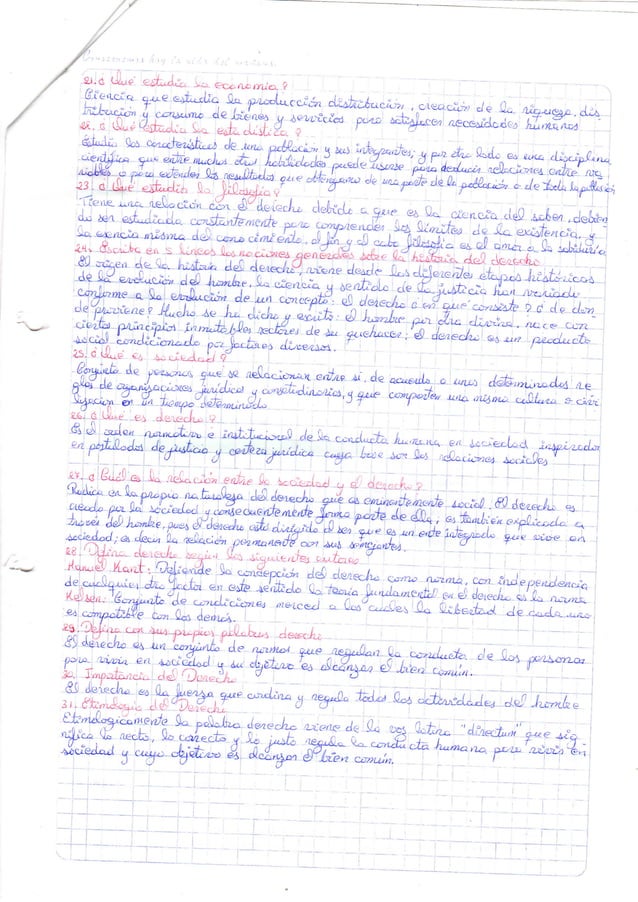 hoy la vida del
21. ¿ Qué estudia la economia?
Ciencia que estudia la producción distribución, creación de la riqueza, dis
tribución y consumo de bienes y servicios para satisfacer necesidades humanas
22. ¿ Qué Estudia la estadistica?
Estudia las características de una población y sus integrantes; y por otro lado es una disciplina
científica que entre muchas otras habilidades puede usarse para deducir relaciones entre va
riables o para extender los resultados que obtengamos de una parte de la población o de toda la población
23. ¿ Qué estudia la filosofia?
Tiene una relación con el derecho debido a que es la ciencia del saber, debien
do ser estudiada constantemente para comprender los límites de la existencia, y
la esencia misma del conocimiento, al fin y al cabo filosofia es el amor a la sabiduría
24. Escriba en 5 lineas las nociones generales sobre la historia del derecho
El origen de la historia del derecho, viene desde las diferentes etapas históricas
de la evolución del hombre, la ciencia y sentido de la justicia han variado
conforme a la evolución de un concepto: el derecho ¿ en qué consiste? ¿ de dón
de proviene? Mucho se ha dicho y escrito: el hombre por obra divina, nace con
ciertos principios inmutables rectores de su quehacer; el derecho es un producto
social condicionado por factores diversos.
25. ¿ Qué es sociedad?
Conjunto de personas que se relacionan entre si, de acuerdo a unas determinadas re
glas de organizaciones jurídica y consetudinarias, y que comparten una misma cultura o civi
lizacion en un tiempo determinado.
26. ¿ Qué es derecho?
Es el orden normativo e institucional de la conducta humana en sociedad inspirador
en postulados de justicia y certeza jurídica cuya base son las relaciones sociales
27. ¿ Cuál es la relación entre la sociedad y el derecho?
Radica en la propia naturaleza del derecho que es eminentemente social. El derecho es
creado por la sociedad y consecuentemente forma parte de ella; es también explicada a
través del hombre, pues el derecho está dirigido al ser que es un ente integrado que vive en
sociedad; es decir la relación permanente con sus semejantes.
28. Defina derecho según los siguientes autores
Manuel Kant: Defiende la concepción del derecho como norma, con independencia
de cualquier otro factor en este sentido la teoria fundamental en el derecho es la norma
Kelsen: Conjunto de condiciones merced a las cuales la libertad de cada uno
es compatible con los demás.
29. Defina con sus propias palabras derecho
El derecho es un conjunto de normas que regulan la conducta de las personas
para vivir en sociedad y su objetivo es alcanzar el bien común.
30. Importancia del Derecho
El derecho es la fuerza que cordina y regula todas las actividades del hombre
31. Etimología del Derecho
Etimologicamente la palabra derecho viene de la vos latina "directum" que sig
nifica lo recto, lo correcto y lo justo regula la conducta humana para vivir en
sociedad y cuyo objetivo es alcanzar el bien común.